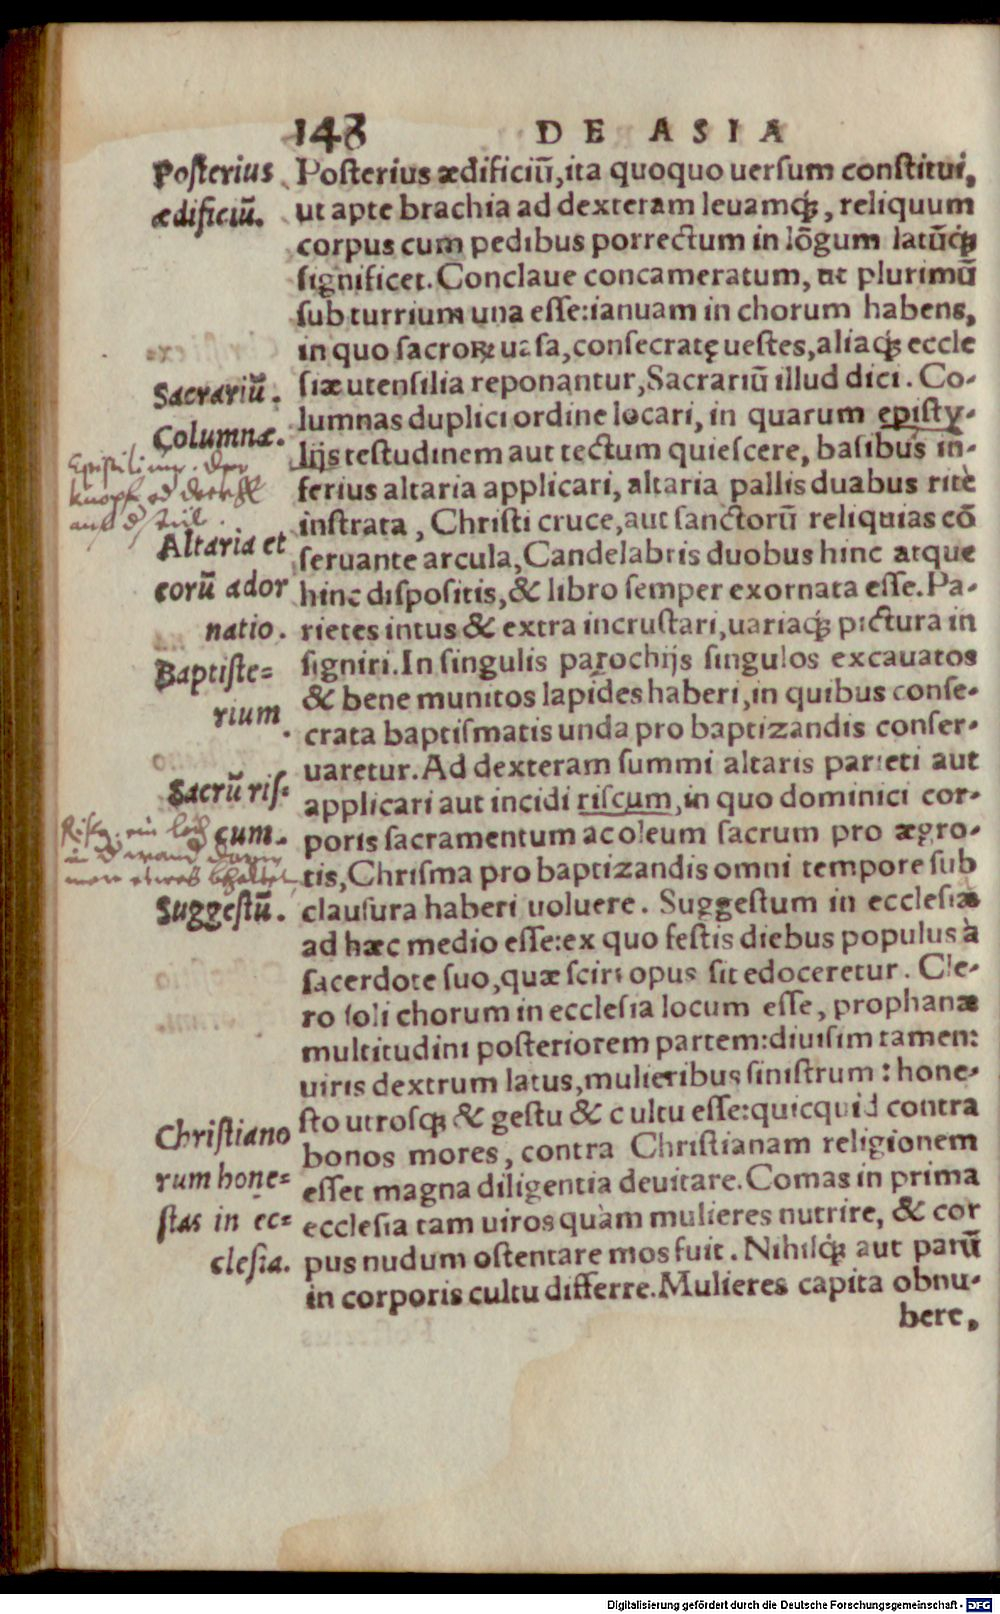 148 DE ASIA
Posterius
ædificiũ.
Posterius ædificiũ, ita quoquo uersum constitui,
ut apte brachia ad dexteram leuamq́;, reliquum
corpus cum pedibus porrectum in lõgum latũq́;
significet. Conclaue concameratum, ut plurimũ
sub turrium una esse: ianuam in chorum habens,
in quo sacroꝝ uasa, consecratę uestes, aliaq́; eccle
Sacrariũ.
siæ utensilia reponantur, Sacrariũ illud dici. Co-
Columnæ.
lumnas duplici ordine locari, in quarum episty-
lijs testudinem aut tectum quiescere, basibus in-
ferius altaria applicari, altaria pallis duabus ritè
instrata, Christi cruce, aut sanctorũ reliquias cõ
Altaria et
eorũ ador
natio.
seruante arcula, Candelabris duobus hinc atque
hinc dispositis, & libro semper exornata esse. Pa-
rietes intus & extra incrustari, uariaq́; pictura in
Baptiste=
rium
signiri. In singulis parochijs singulos excauatos
& bene munitos lapides haberi, in quibus conse-
crata baptismatis unda pro baptizandis conser-
uaretur. Ad dexteram summi altaris parieti aut
Sacrũ ris=
cum.
applicari aut incidi riscum, in quo dominici cor-
poris sacramentum ac oleum sacrum pro ægro-
ein loch
tis, Chrisma pro baptizandis omni tempore sub
Suggestũ.
clausura haberi uoluere. Suggestum in ecclesiæ
ad hæc medio esse: ex quo festis diebus populus à
sacerdote suo, quæ sciri opus sit edoceretur. Cle-
ro soli chorum in ecclesia locum esse, prophanæ
multitudini posteriorem partem: diuisim tamen:
uiris dextrum latus, mulieribus sinistrum: hone-
Christiano
rum hone=
stas in ec=
clesia.
sto utrosq́; & gestu & cultu esse: quicquid contra
bonos mores, contra Christianam religionem
esset magna diligentia deuitare. Comas in prima
ecclesia tam uiros quàm mulieres nutrire, & cor
pus nudum ostentare mos fuit. Nihilq́; aut parũ
in corporis cultu differre. Mulieres capita obnu-
bere,
Digitalisierung gefördert durch die Deutsche Forschungsgemeinschaft - DFG